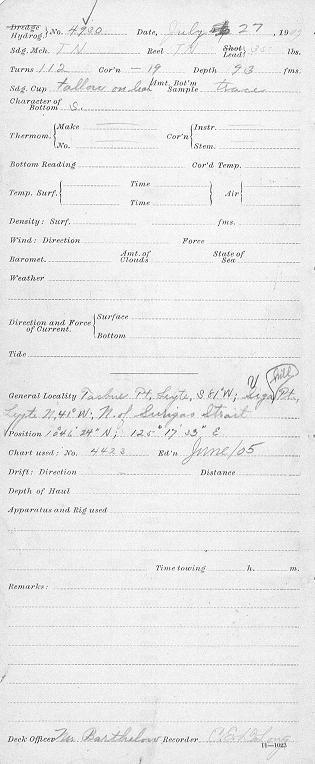 Dredge
Hydrog. } No. 4930 Date, July 27, 19
Sdg. Mch. T N Reel T N Shot Lead lbs.
Turns 112 Cor'n - 19 Depth 93 fms.
Sdg. Cup Tallow on lead Amt. Bot'm Sample trace
Character of Bottom S.
Thermom. { Make No. } Cor'n { Instr. Stem.
Bottom Reading Cor'd Temp.
Temp. Surf. { Time Time } Air {
Density: Surf. fms.
Wind: Direction Force
Baromet. Amt. of Clouds State of Sea
Weather
Direction and Force of Current. { Surface Bottom
Tide
hill
General Locality Pt, Leyte, S 81° W; Pt,
Leyte N, 41° W; N. of Surigao Strait
Position 24" N; 125° 17' 33" E
Chart used: No. 4423 Ed'n June/05
Drift: Direction Distance
Depth of Haul
Apparatus and Rig used
Time towing h. m.
Remarks:
Deck Officer Mr. Barthelow Recorder
11—1023